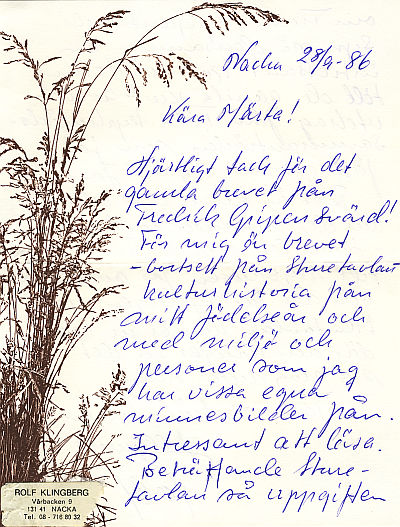 Nacka 28/9-86
Kära Märta!
Hjärtligt tack för det
gamla brevet från
Fredrik Gripensvärd!
För mig är brevet
- bortsett från Sturetavlan
kulturhistoria från
mitt födelseår och
med miljö och
personer som jag
har vissa egna
minnesbilder från.
Intressant att läsa.
Beträffande Sture-
tavlan så uppgiften
ROLF KLINGBERG
Vårbacken 9
131 41 NACKA
Tel. 08 - 716 80 32